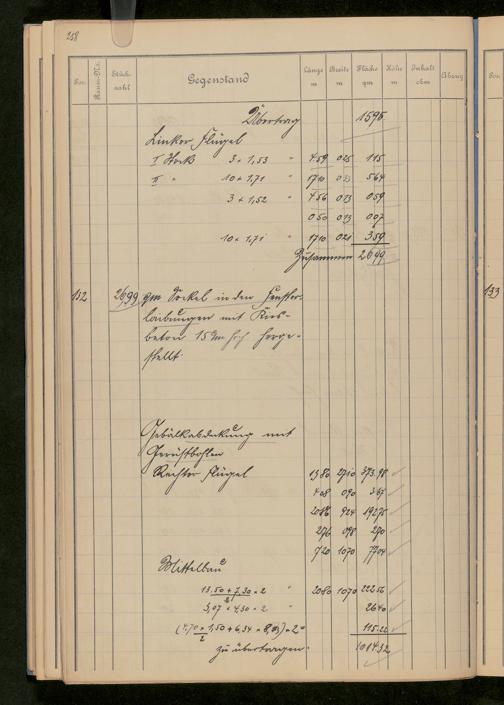 218
Pos. Raum-No. Stückzahl Gegenstand Länge m Breite m Fläche qm Höhe m Inhalt cbm Abzug
Übertrag 1595
Linker Flügel
I Stock 3 × 1,53 " 4 59 0 25 1 15
II " 10 × 1,71 " 17 10 0 33 5 64
3 × 1,52 " 4 56 0 13 0 59
0 50 0 13 0 07
10 × 1,71 " 17 10 0 21 3 59
Zusammen 26 99
132 26,99 qm Sockel in den Fenster-
laibungen mit Kies-
beton 15 cm hoch herge-
stellt.
133
Gebälkabdeckung mit
Gerüstbohlen
Rechter Flügel 13 80 27 10 373.98
4 08 0 90 3 67
20 86 9 24 192 75
2 76 0 98 2 70
7 20 10 70 77 04
Mittelbau
13.50 + 7.30 × 2 " 20 80 10 70 222 56
2
3,07 × 4,30 × 2 " 26 40
(4,70 × 1,50 + 6,34 × 8,03) × 2 " 115.22
2
zu übertragen. 1014.32